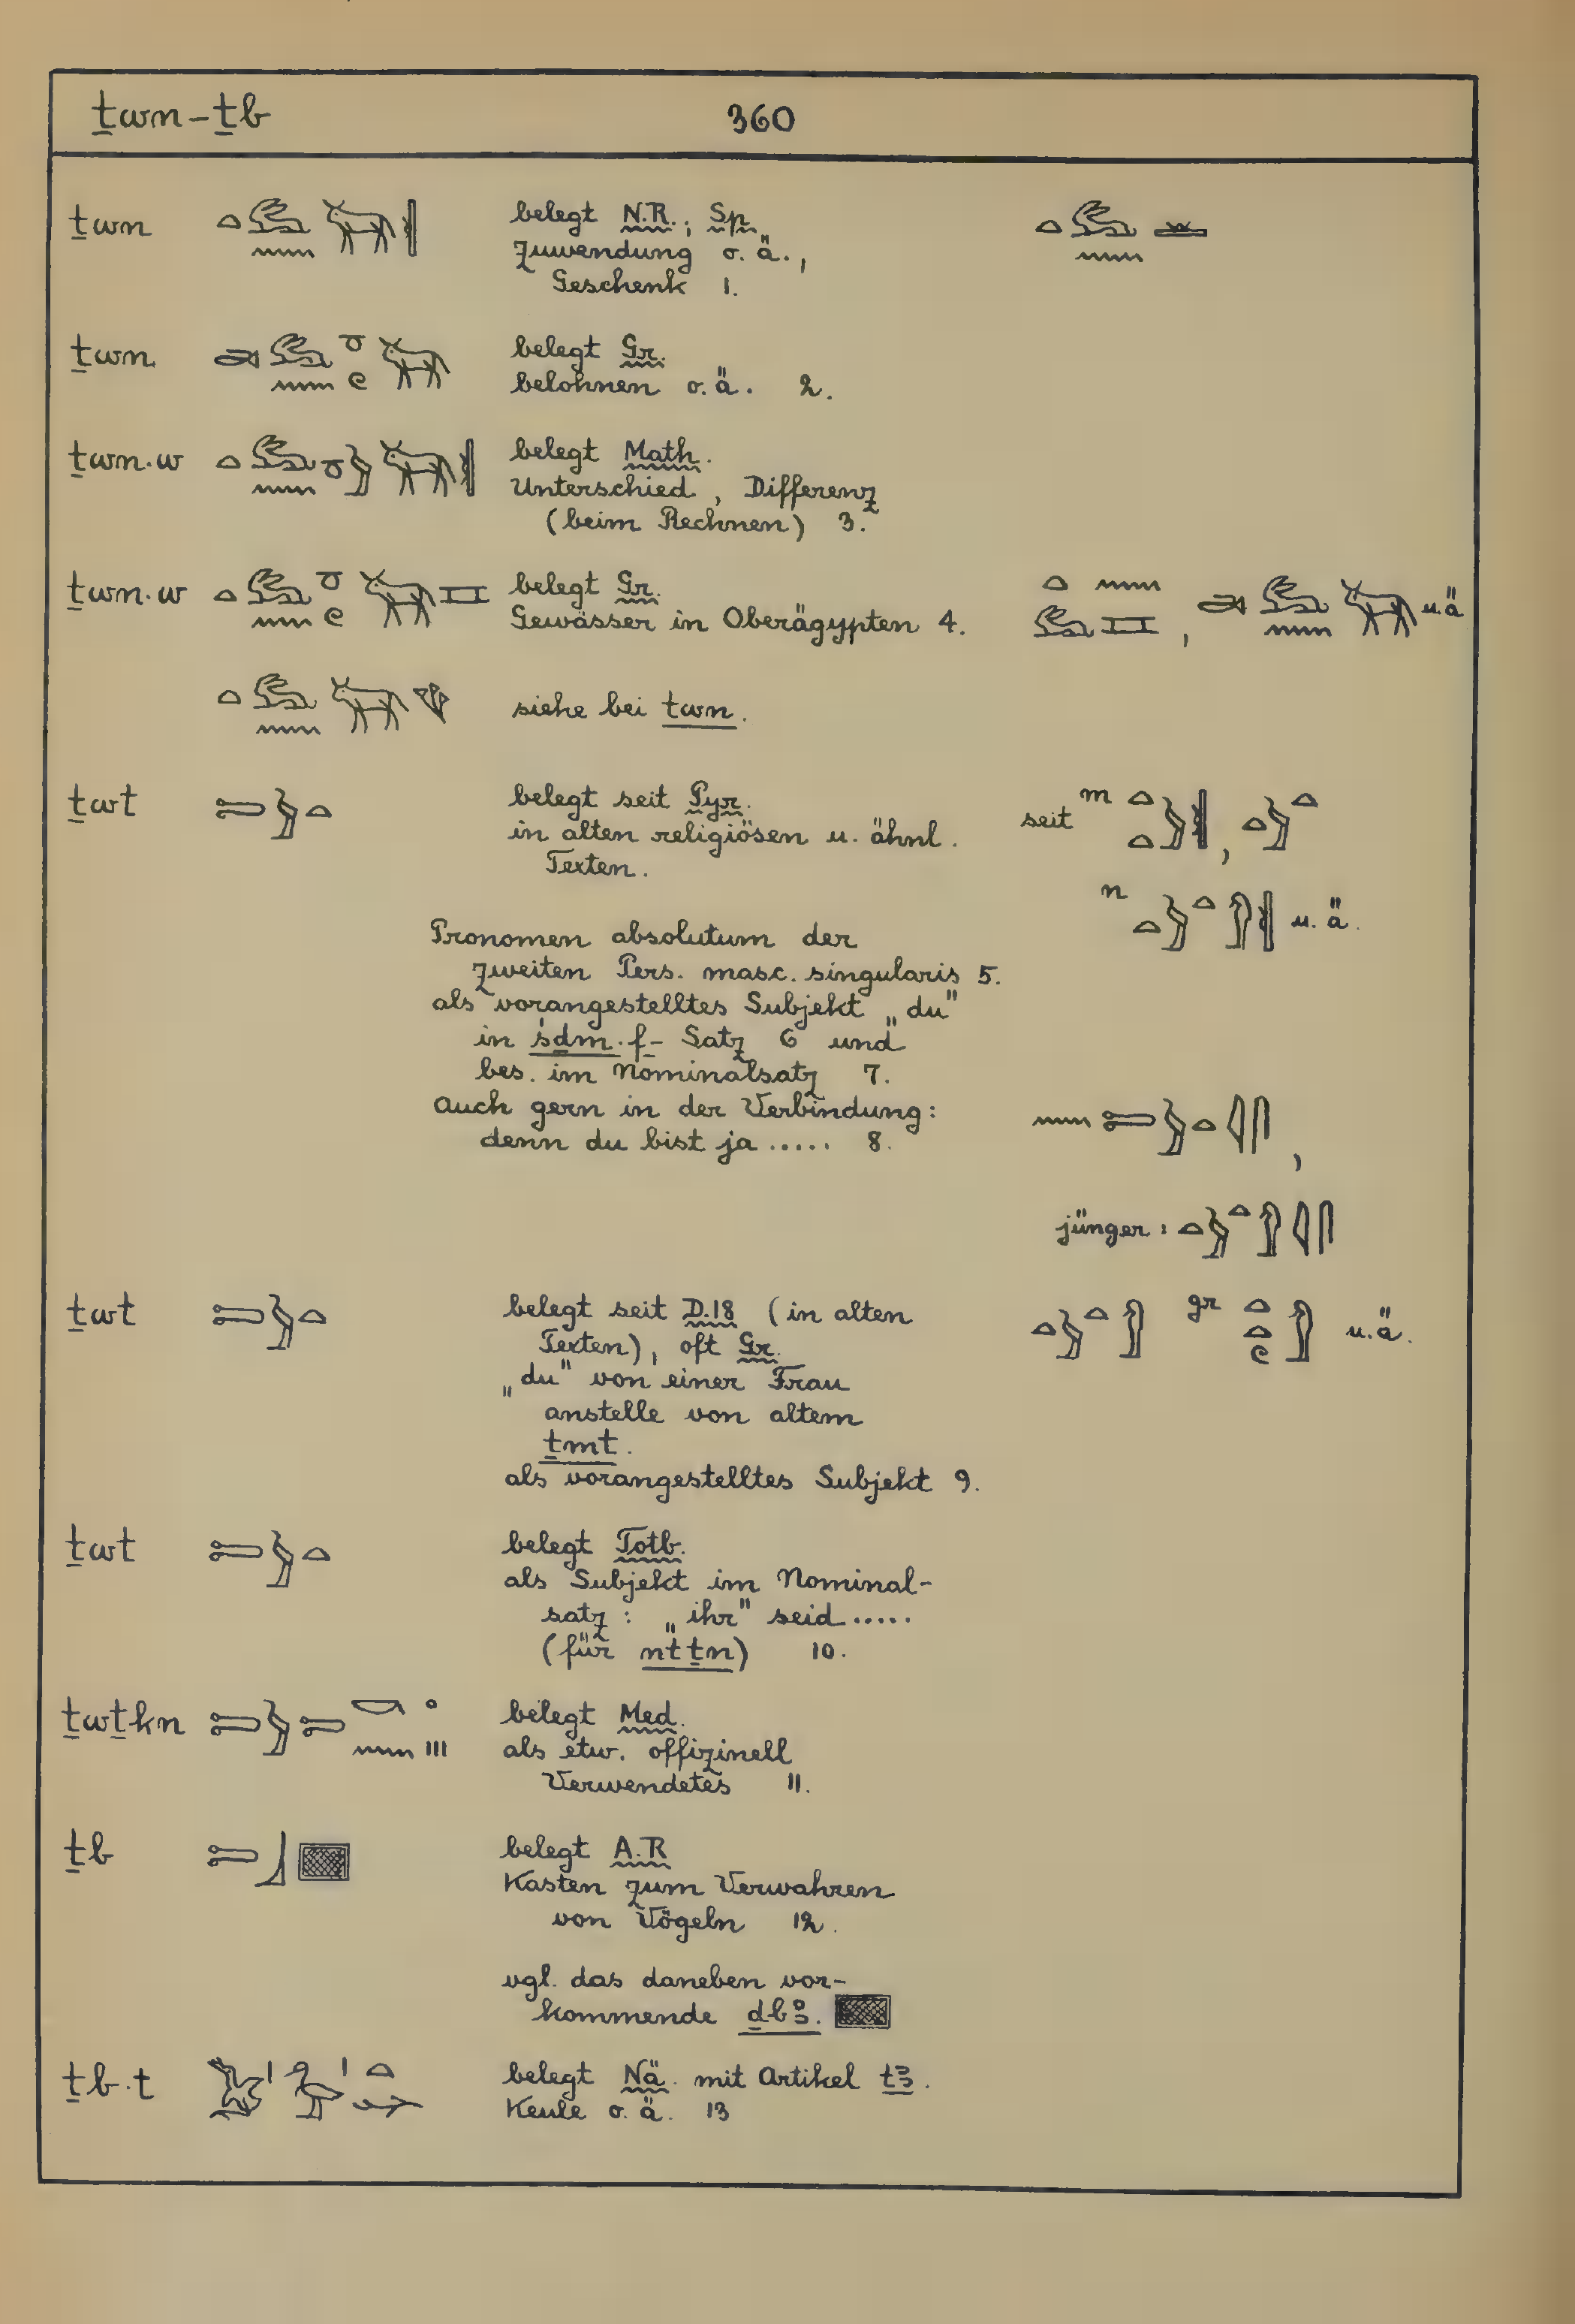 ṯwn – ṯb 360
ṯwn belegt N.R.; Sp.
Zuwendung o. ä.,
Geschenk 1.
ṯwn belegt Gr.
belohnen o. ä. 2.
ṯwn.w belegt Math.
Unterschied, Differenz
(beim Rechnen) 3.
ṯwn.w belegt Gr. u. ä
Gewässer in Oberägypten 4.
siehe bei twn.
ṯwt belegt seit Pyr. seit m
in alten religiösen u. ähnl.
Texten.
n u. ä.
Pronomen absolutum der
zweiten Pers. masc. singularis 5.
als vorangestelltes Subjekt „du"
in śḏm.f- Satz 6 und
bes. im Nominalsatz 7.
Auch gern in der Verbindung:
denn du bist ja ..... 8.
jünger:
ṯwt belegt seit D.18 (in alten gr u. ä.
Texten), oft Gr.
„du" von einer Frau
anstelle von altem
ṯmt.
als vorangestelltes Subjekt 9.
ṯwt belegt Totb.
als Subjekt im Nominal-
satz: „ihr" seid .....
(für nttṯn) 10.
ṯwṯkn belegt Med.
als etw. offizinell
Verwendetes 11.
ṯb belegt A.R
Kasten zum Verwahren
von Vögeln 12.
vgl. das daneben vor-
kommende ḏbꜣ.
ṯb.t belegt Nä. mit Artikel tꜣ.
Keule o. ä. 13